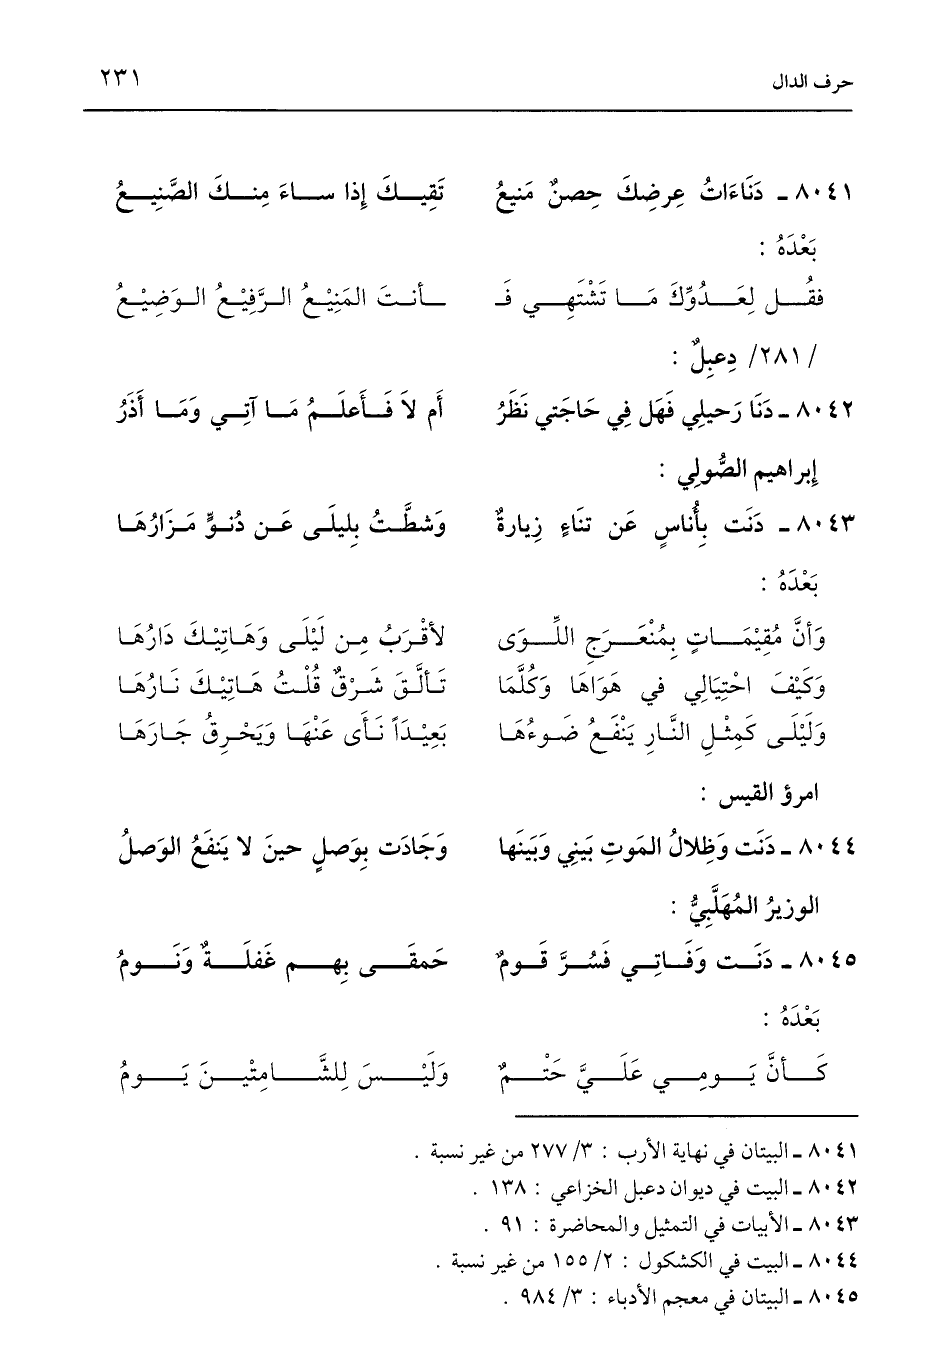 حرف الدال ٢٣١
٨٠٤١ ـ دَنَاءَاتُ عِرضِكَ حِصنٌ مَنيعُ تَقِيـكَ إِذا سـاءَ مِنـكَ الصَّنِيـعُ
بَعْدَهُ :
فقُـل لِعَـدُوِّكَ مَـا تَشْتَهِـي فَـ ـأنـتَ المَنِيْـعُ الـرَّفِيْـعُ الـوَضِيْـعُ
/ ٢٨١/ دِعبِلٌ :
٨٠٤٢ ـ دَنَا رَحيلِي فَهَل فِي حَاجَتي نَظَرُ أَم لاَ فَـأَعلَـمُ مَـا آتِـي وَمَـا أَذَرُ
إبراهيم الصُّولِي :
٨٠٤٣ ـ دَنَت بِأُناسٍ عَن تنَاءٍ زِيارةٌ وَشطَّـتُ بِليلَـى عَـن دُنـوٍّ مَـزَارُهَـا
بَعْدَهُ :
وَأنَّ مُقِيْمَـاتٍ بِمُنْعَـرَجِ اللِّـوَى لأقْرَبُ مِـن لَيْلَـى وَهَـاتِيْـكَ دَارُهَـا
وَكَيْفَ احْتِيَالِي فـي هَوَاهَا وَكُلَّمَا تَـألَّـقَ شَـرْقٌ قُلْـتُ هَـاتِيـكَ نَـارُهَـا
وَلَيْلَـى كَمِثْـلِ النَّـارِ يَنْفَـعُ ضَـوءُهَـا بَعِيْـدَاً نَـأَى عَنْهَـا وَيَحْـرِقُ جَـارَهَـا
امرؤ القيس :
٨٠٤٤ ـ دَنَت وَظِلالُ المَوتِ بَينِي وَبَينَها وَجَادَت بِوَصلٍ حينَ لا يَنفَعُ الوَصلُ
الوزيرُ المُهَلَّبِيُّ :
٨٠٤٥ ـ دَنَـت وَفَـاتِـي فَسُـرَّ قَـومٌ حَمقَـى بِهِـم غَفلَـةٌ وَنَـومُ
بَعْدَهُ :
كَـأنَّ يَـومِـي عَلَـيَّ حَتْـمٌ وَلَيْـسَ لِلشَّـامِتْيـنَ يَـومُ
٨٠٤١ ـ البيتان في نهاية الأرب : ٣/ ٢٧٧ من غير نسبة .
٨٠٤٢ ـ البيت في ديوان دعبل الخزاعي : ١٣٨ .
٨٠٤٣ ـ الأبيات في التمثيل والمحاضرة : ٩١ .
٨٠٤٤ ـ البيت في الكشكول : ٢/ ١٥٥ من غير نسبة .
٨٠٤٥ ـ البيتان في معجم الأدباء : ٣/ ٩٨٤ .